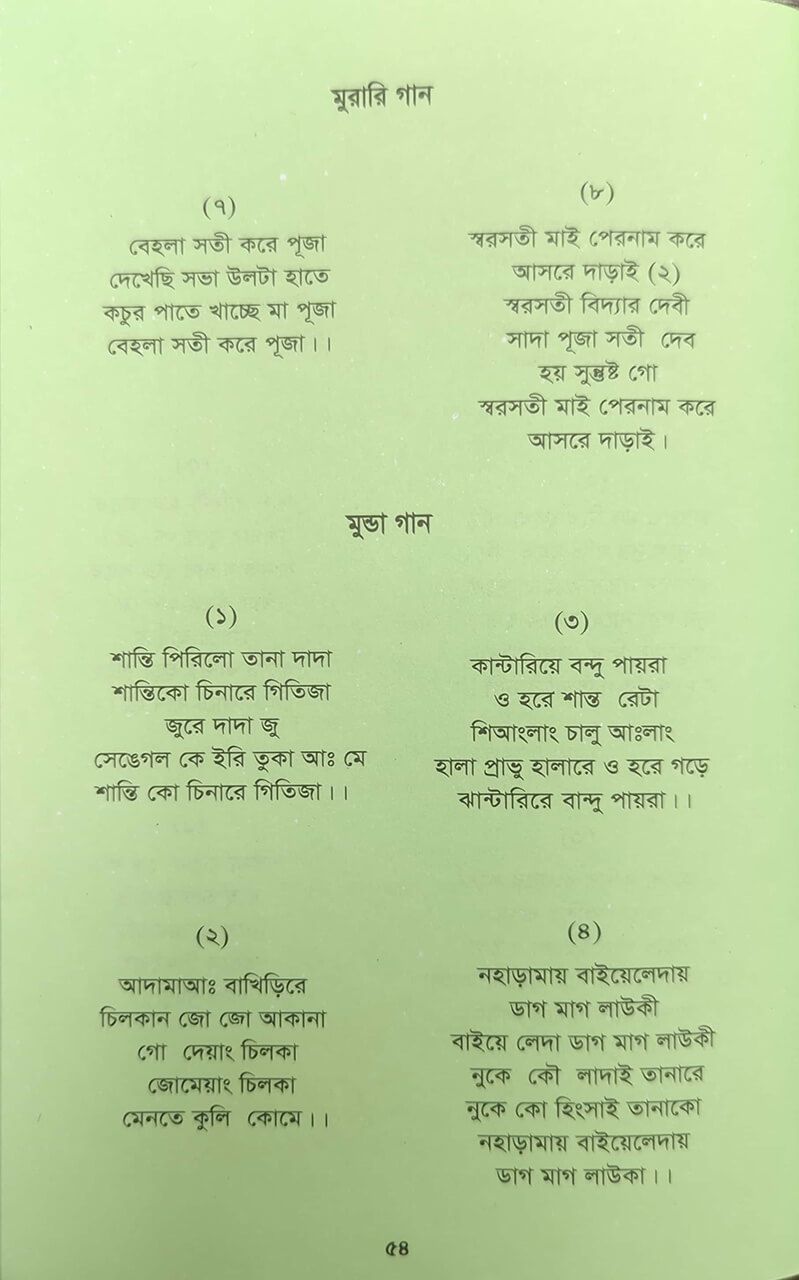 মুরারি গান
(৭)
বেহুলা সতী করে পূজা
দেখেছি সভা উলটা হাতে
কচুর পাতে খাচ্ছে মা পূজা
বেহুলা সতী করে পূজা।।
(৮)
স্বরসতী মাই পেরনাম করে
আসরে দাড়াই (২)
স্বরসতী বিদ্যার দেবী
সাদা পূজা সতী দেব
হয় সুন্তুষ্ট গো
স্বরসতী মাই পেরনাম করে
আসরে দাড়াই।
মুন্ডা গান
(১)
শান্তি পিরিলো তানা দাদা
শান্তিকো চিনারে পিতিজা
জুরে দাদা জু
সেঙেগেল কে ইরি তুকা আঃ মে
শান্তি কো চিনারে পিতিজা।।
(২)
আদামাআঃ বাখিড়িরে
চিলকান জো জো আকানা
গো দেয়াং চিলকা
জোমেয়াং চিলকা
মেনতে কুলি কোমে।।
(৩)
কান্টারিয়ে বন্দু পায়রা
ও হরে শান্ত রেটা
শিআংলাং চালু আঃলাং
হালা প্রান্তু হালারে ও হরে গড়ে
ঝান্টারিরে বান্দু পায়রা।।
(৪)
নহাড়ামায় বাইয়েলেদায়
ডাগ মাগ লাউকী
বাইয়ে লেদা ডাগ মাগ লাউকী
নুকে কৌ লাদাই তানারে
নুকে কো হিংসাই তানাকো
নহাড়ামায় বাইয়েলেদায়
ডাগ মাগ লাউকা।।
৫৪